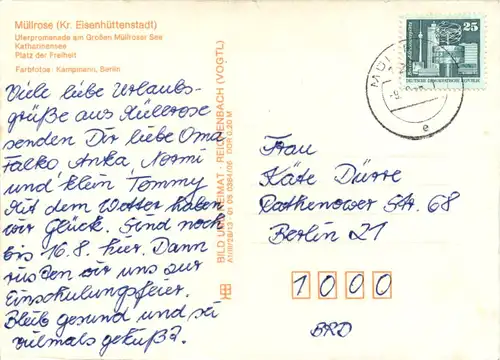 Müllrose (Kr. Eisenhüttenstadt)
Uferpromenade am Großen Müllroser See
Katharinensee
Platz der Freiheit
Farbfotos: Kampmann, Berlin
Viele liebe Urlaubs-
grüße aus Müllrose
senden Dir liebe Oma
Falko Anka, Normi
und klein Tommy
Mit dem Wetter haben
wir Glück. Sind noch
bis 16.8. hier. Dann
rüsten wir uns zur
Einschulungsfeier.
Bleib gesund und sei
vielmals geküßt.
BILD UND HEIMAT · REICHENBACH (VOGTL)
A1/III/26/13 · 01 09 0384/06 DDR 0,20 M
25
DEUTSCHE DEMOKRATISCHE REPUBLIK
e
Frau
Käte Dürre
Rathenower Str. 68
Berlin 21
1000
BRD